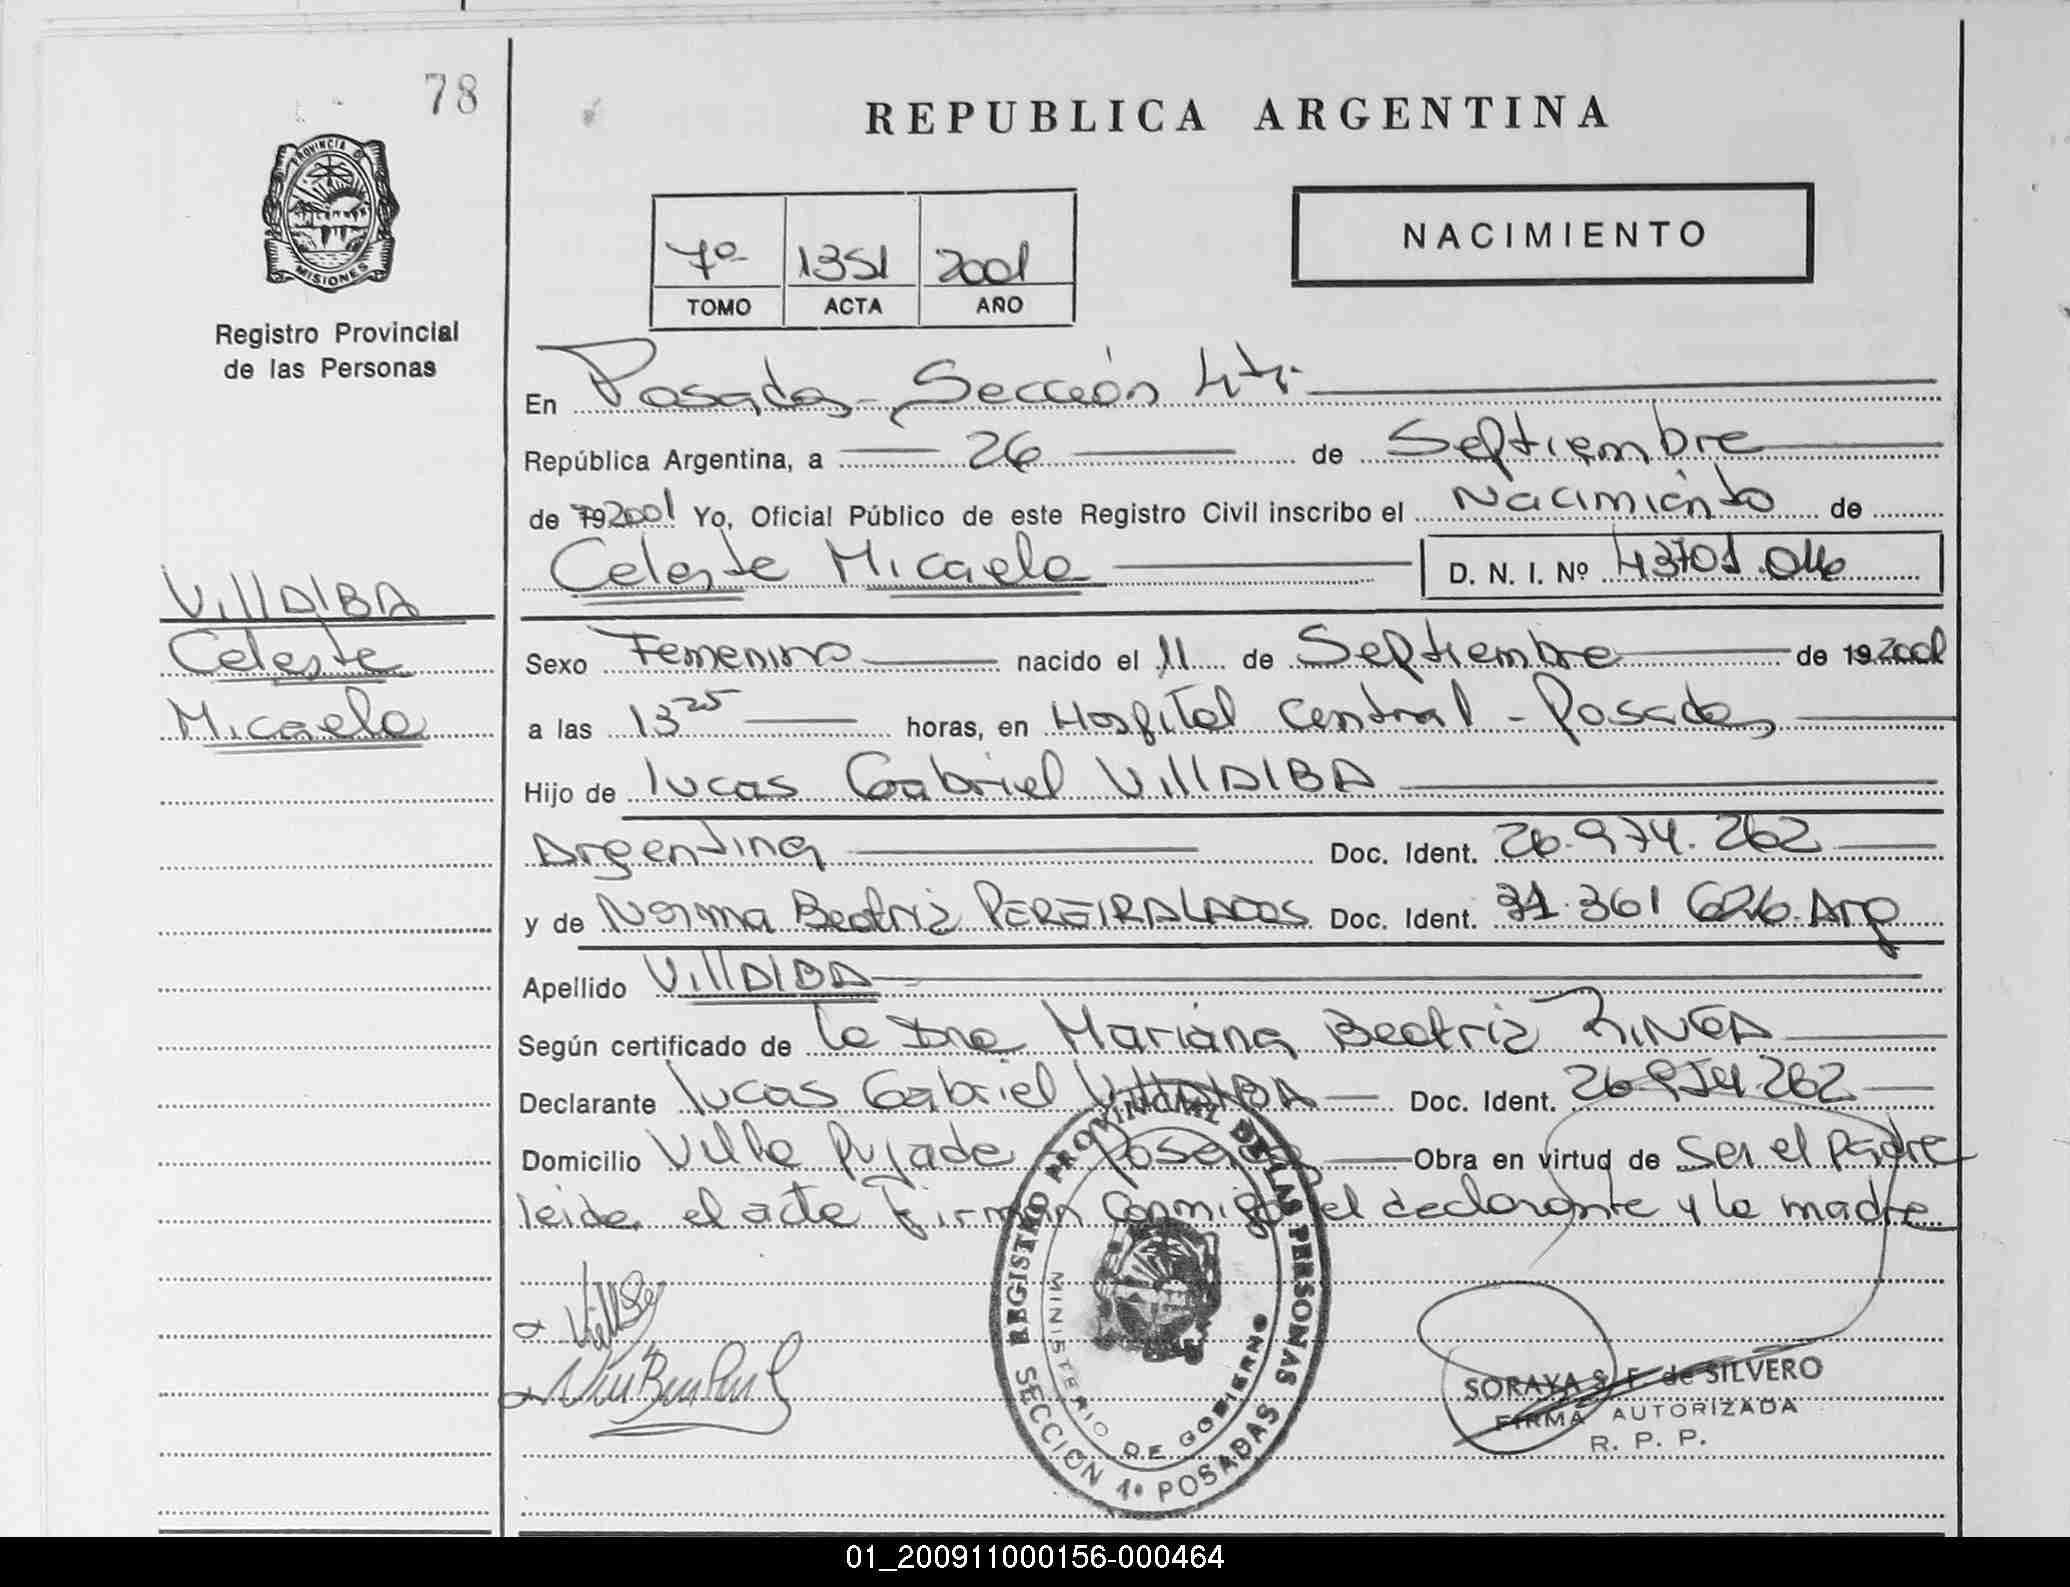 78
REPUBLICA ARGENTINA
PROVINCIA DE MISIONES
Registro Provincial
de las Personas
NACIMIENTO
7º 1351 2001
TOMO ACTA AÑO
En Posadas - Sección 4ta.
República Argentina, a 26 de Septiembre
de 19 2001 Yo, Oficial Público de este Registro Civil inscribo el Nacimiento de
Celeste Micaela D. N. I. Nº 43701.046
VIllAlBA
Celeste
Micaela
Sexo Femenino nacido el 11 de Septiembre de 19 2001
a las 13 25 horas, en Hospital Central - Posadas
Hijo de lucas Gabriel VIllAlBA
Argentina Doc. Ident. 26.974.262
y de Norma Beatriz PEREIRA Doc. Ident. 31.361 626. Arg
Apellido VIllAlBA
Según certificado de la Dra Mariana Beatriz
Declarante lucas Gabriel VIllAlBA Doc. Ident. 26.974.262
Domicilio Villa Pujade Posadas Obra en virtud de Ser el Padre
leida el acta firman conmigo el declarante y la madre
REGISTRO PROVINCIAL DE LAS PERSONAS
MINISTERIO DE GOBIERNO
SECCION 1º POSADAS
SORAYA S. F. de SILVERO
FIRMA AUTORIZADA
R. P. P.
01_200911000156-000464